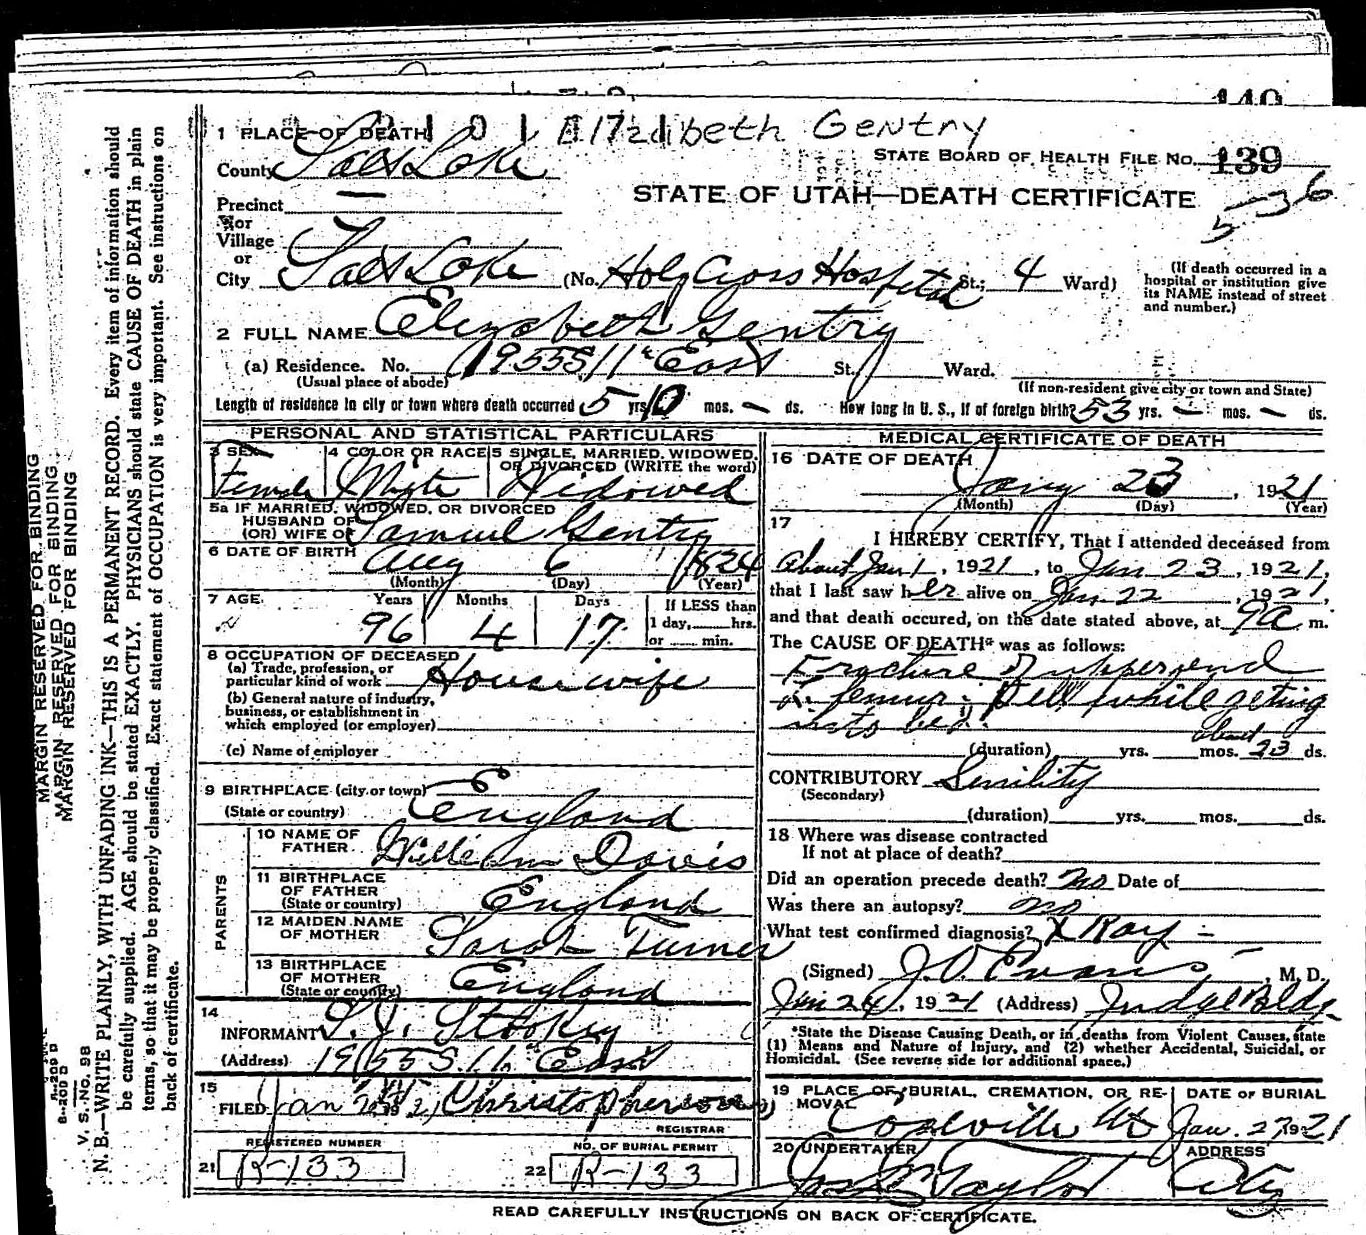 140
1 PLACE OF DEATH Elizabeth Gentry
County Salt Lake STATE BOARD OF HEALTH FILE NO. 139
STATE OF UTAH—DEATH CERTIFICATE
Precinct 5-36
or
Village
or
City Salt Lake (No. Holy Cross Hospital St.; 4 Ward) (If death occurred in a hospital or institution give its NAME instead of street and number.)
2 FULL NAME Elizabeth Gentry
(a) Residence. No. 1955 S 11" East St. Ward.
(Usual place of abode) (If non-resident give city or town and State)
Length of residence in city or town where death occurred 5 yrs. 10 mos. – ds. How long in U. S., if of foreign birth? 53 yrs. – mos. – ds.
PERSONAL AND STATISTICAL PARTICULARS
3 SEX 4 COLOR OR RACE 5 SINGLE, MARRIED, WIDOWED, OR DIVORCED (WRITE the word)
Female White Widowed
5a IF MARRIED, WIDOWED, OR DIVORCED
HUSBAND OF
(OR) WIFE OF Samuel Gentry
6 DATE OF BIRTH Aug 6 1824
(Month) (Day) (Year)
7 AGE Years Months Days If LESS than
96 4 17 1 day, hrs.
or min.
8 OCCUPATION OF DECEASED
(a) Trade, profession, or
particular kind of work Housewife
(b) General nature of industry,
business, or establishment in
which employed (or employer)
(c) Name of employer
9 BIRTHPLACE (city or town)
(State or country) England
PARENTS
10 NAME OF
FATHER William Davis
11 BIRTHPLACE
OF FATHER
(State or country) England
12 MAIDEN NAME
OF MOTHER Sarah Turner
13 BIRTHPLACE
OF MOTHER
(State or country) England
14
INFORMANT S. J. Stookey
(Address) 1955 S. 11. East
15
FILED Jan 1921 Christopherson
REGISTRAR
REGISTERED NUMBER NO. OF BURIAL PERMIT
21 R-133 22 R-133
MEDICAL CERTIFICATE OF DEATH
16 DATE OF DEATH
Jany 23, 1921
(Month) (Day) (Year)
17
I HEREBY CERTIFY, That I attended deceased from
about Jan 1, 1921, to Jan 23, 1921,
that I last saw her alive on Jan 22, 1921,
and that death occured, on the date stated above, at 9 a m.
The CAUSE OF DEATH* was as follows:
Fracture of upper end
of femur. Fell while geting
into bed.
about
(duration) yrs. mos. 23 ds.
CONTRIBUTORY Senility
(Secondary)
(duration) yrs. mos. ds.
18 Where was disease contracted
If not at place of death?
Did an operation precede death? no Date of
Was there an autopsy? no
What test confirmed diagnosis? X Ray –
(Signed) J. O. Evans, M. D.
Jan 24, 1921 (Address) Judge Bldg.
*State the Disease Causing Death, or in deaths from Violent Causes, state
(1) Means and Nature of Injury, and (2) whether Accidental, Suicidal, or
Homicidal. (See reverse side for additional space.)
19 PLACE OF BURIAL, CREMATION, OR RE- DATE OF BURIAL
MOVAL
Coalville Ut Jan. 27 1921
20 UNDERTAKER ADDRESS
Jos. Taylor City
READ CAREFULLY INSTRUCTIONS ON BACK OF CERTIFICATE.
MARGIN RESERVED FOR BINDING
MARGIN RESERVED FOR BINDING
MARGIN RESERVED FOR BINDING
V. S. No. 98
N. B.—WRITE PLAINLY, WITH UNFADING INK—THIS IS A PERMANENT RECORD. Every item of information should
be carefully supplied. AGE should be stated EXACTLY. PHYSICIANS should state CAUSE OF DEATH in plain
terms, so that it may be properly classified. Exact statement of OCCUPATION is very important. See instructions on
back of certificate.